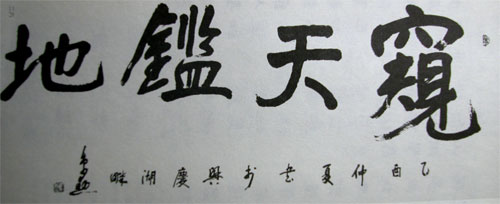 窺天鑑地
乙酉仲夏書於興慶湖畔